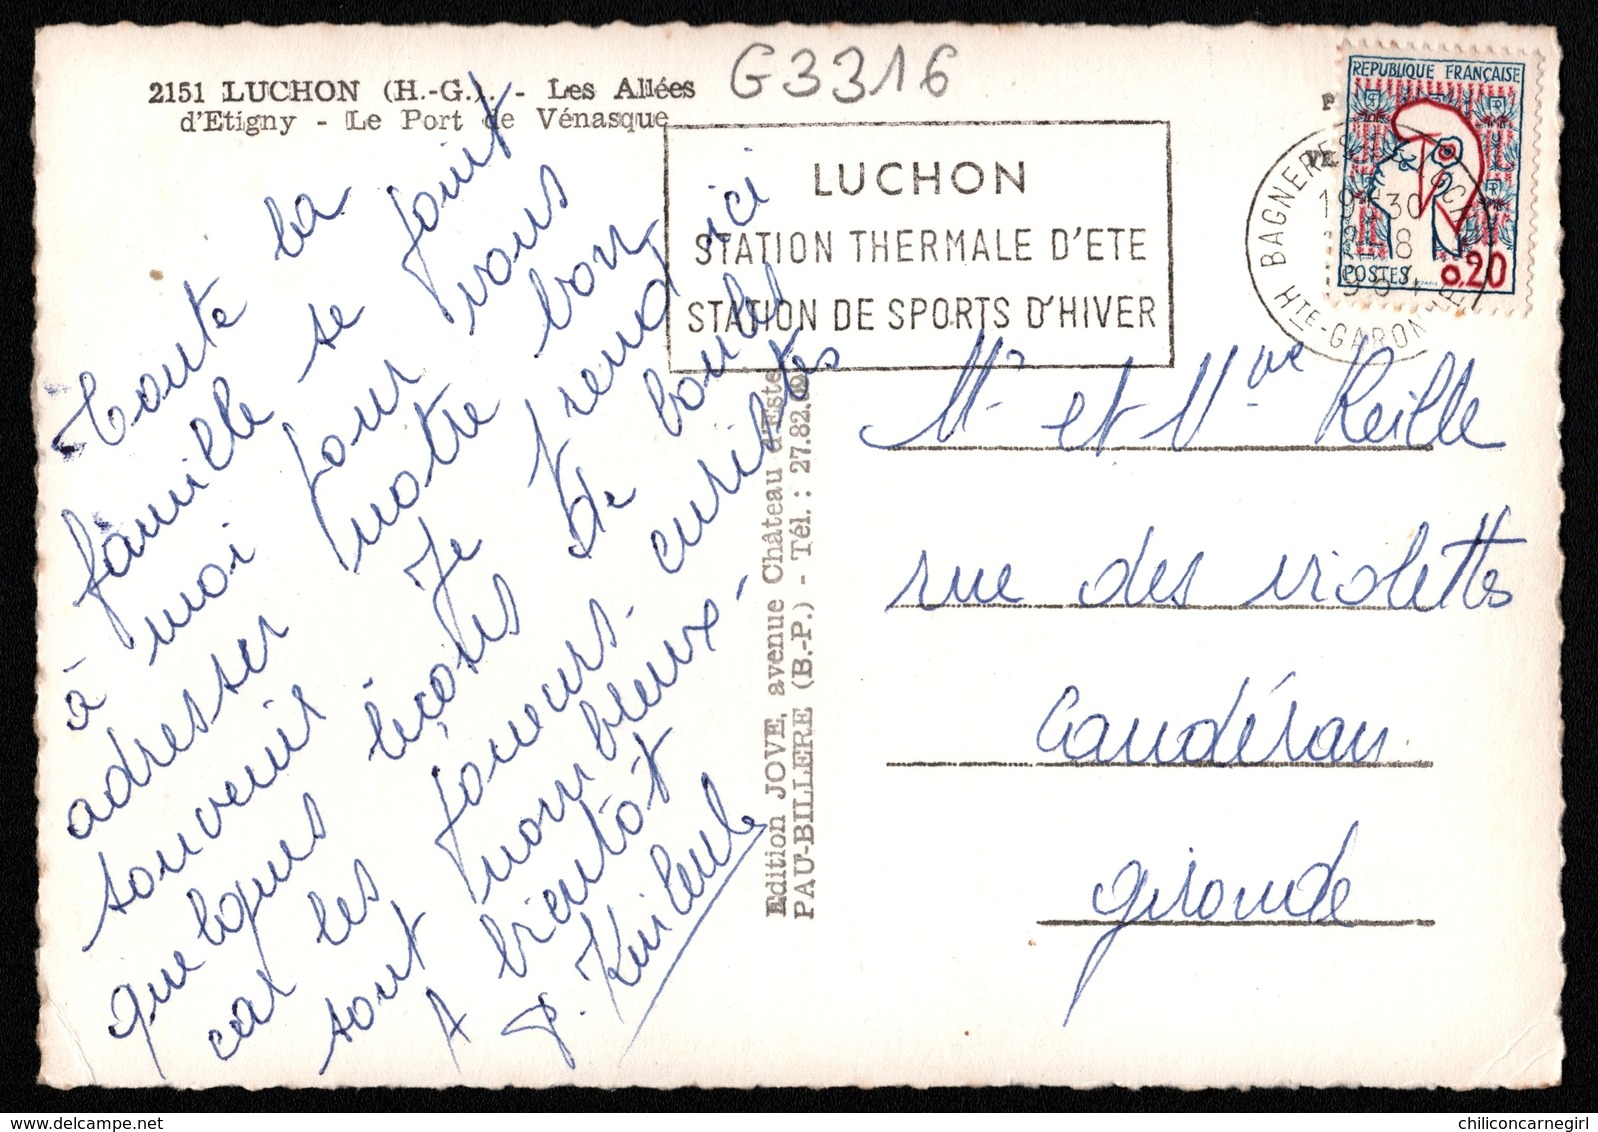 G3316
2151 LUCHON (H.-G.). - Les Allées
d'Etigny - Le Port de Vénasque
LUCHON
STATION THERMALE D'ETE
STATION DE SPORTS D'HIVER
REPUBLIQUE FRANÇAISE
POSTES 0,20
BAGNERES DE LUCHON
HTE-GARONNE
19 H30
2-8
Toute la
famille se joint
à moi pour vous
adresser notre bon
souvenir. Je prends ici
quelques leçons de boules
car les joueurs émérites
sont nombreux.
A bientôt
Edition JOVE, avenue Château d'Este
PAU-BILLERE (B.-P.) - Tél. : 27.82.
Mr et Mme Reille
rue des violettes
Caudéran
Gironde
chiliconcarnegirl